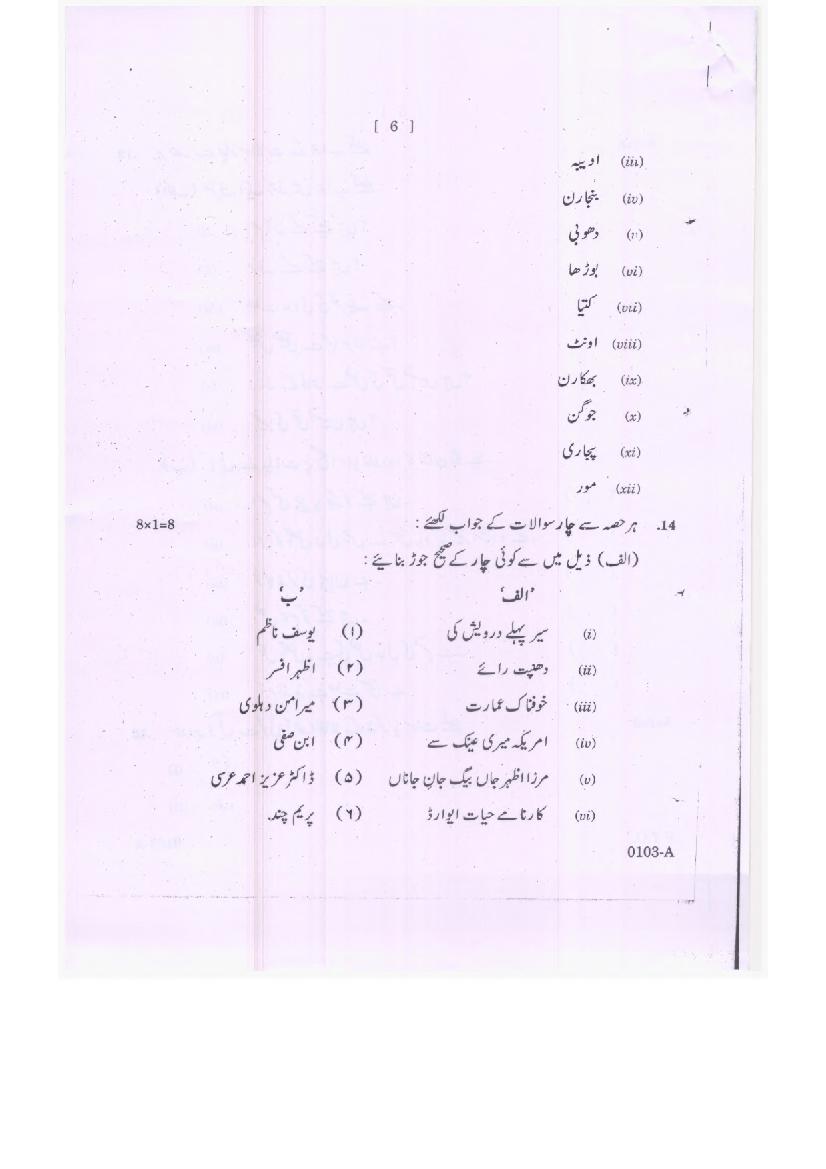 [ 6 ]
(iii) اوبیہ
(iv) بنجارن
(v) دھوبی
(vi) بوڑھا
(vii) کتیا
(viii) اونٹ
(ix) بھکارن
(x) جوگن
(xi) پجاری
(xii) مور
14. ہر حصہ سے چار سوالات کے جواب لکھئے : 8×1=8
(الف) ذیل میں سے کوئی چار کے صحیح جوڑ بنائیے :
’الف‘ ’ب‘
(i) سیر پہلے درویش کی (۱) یوسف ناظم
(ii) دھنپت رائے (۲) اظہر افسر
(iii) خوفناک عمارت (۳) میر امن دہلوی
(iv) امریکہ میری عینک سے (۴) ابن صفی
(v) مرزا اظہر جاں بیگ جانِ جاناں (۵) ڈاکٹر عزیز احمد عرسی
(vi) کارنامے حیات ایوارڈ (۶) پریم چند.
0103-A